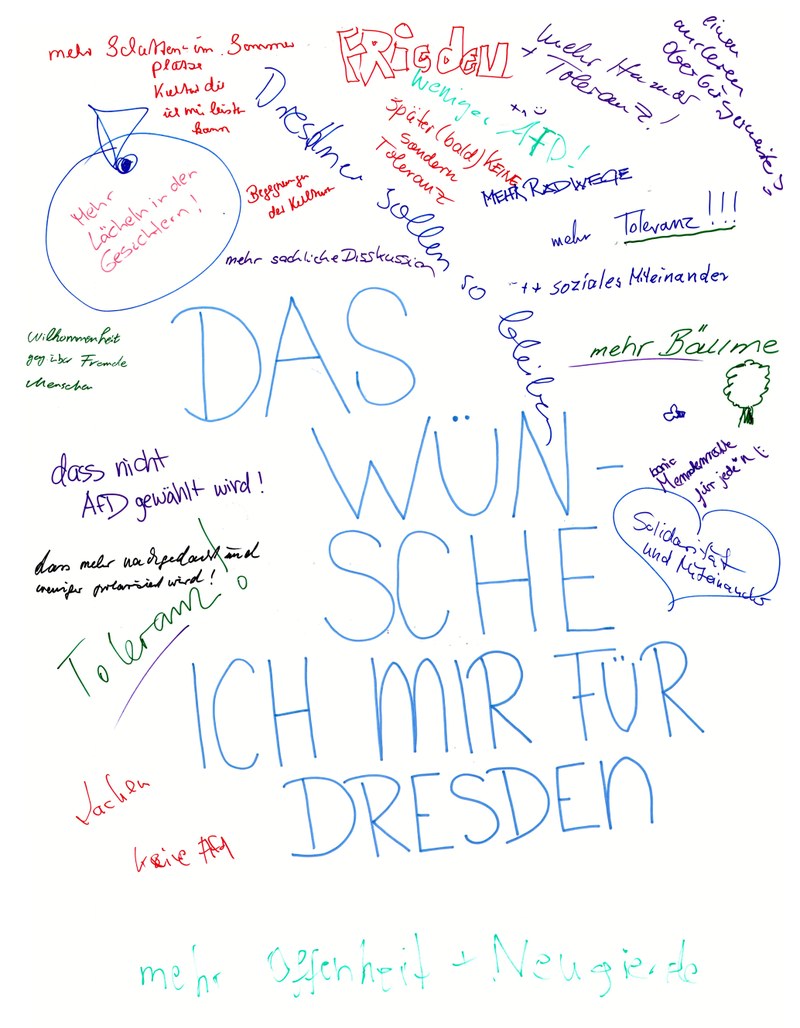 mehr Schatten im Sommer
plätze
Kultur die
ich mir leisten
kann
FRIEDEN
weniger AfD!
später (bald) KEINE
sondern
Toleranz
mehr Humor
+ Toleranz!
einen
anderen
Oberbürgermeister
Dresdner sollen so bleiben
Mehr
Lächeln in den
Gesichtern!
Begegnungen
der Kulturen
MEHR RADWEGE
mehr Toleranz!!!
mehr sachliche Disskussion
++ soziales Miteinander
Willkommenheit
gegüber Fremde
Menschen
mehr Bäume
DAS
WÜN-
SCHE
ICH MIR FÜR
DRESDEN
dass nicht
AfD gewählt wird!
für jede*n
Solidarität
und Miteinander
dass mehr nachgedacht und
weniger polarisiert wird!
Toleranz!
Lachen
keine Afd
mehr Offenheit + Neugierde